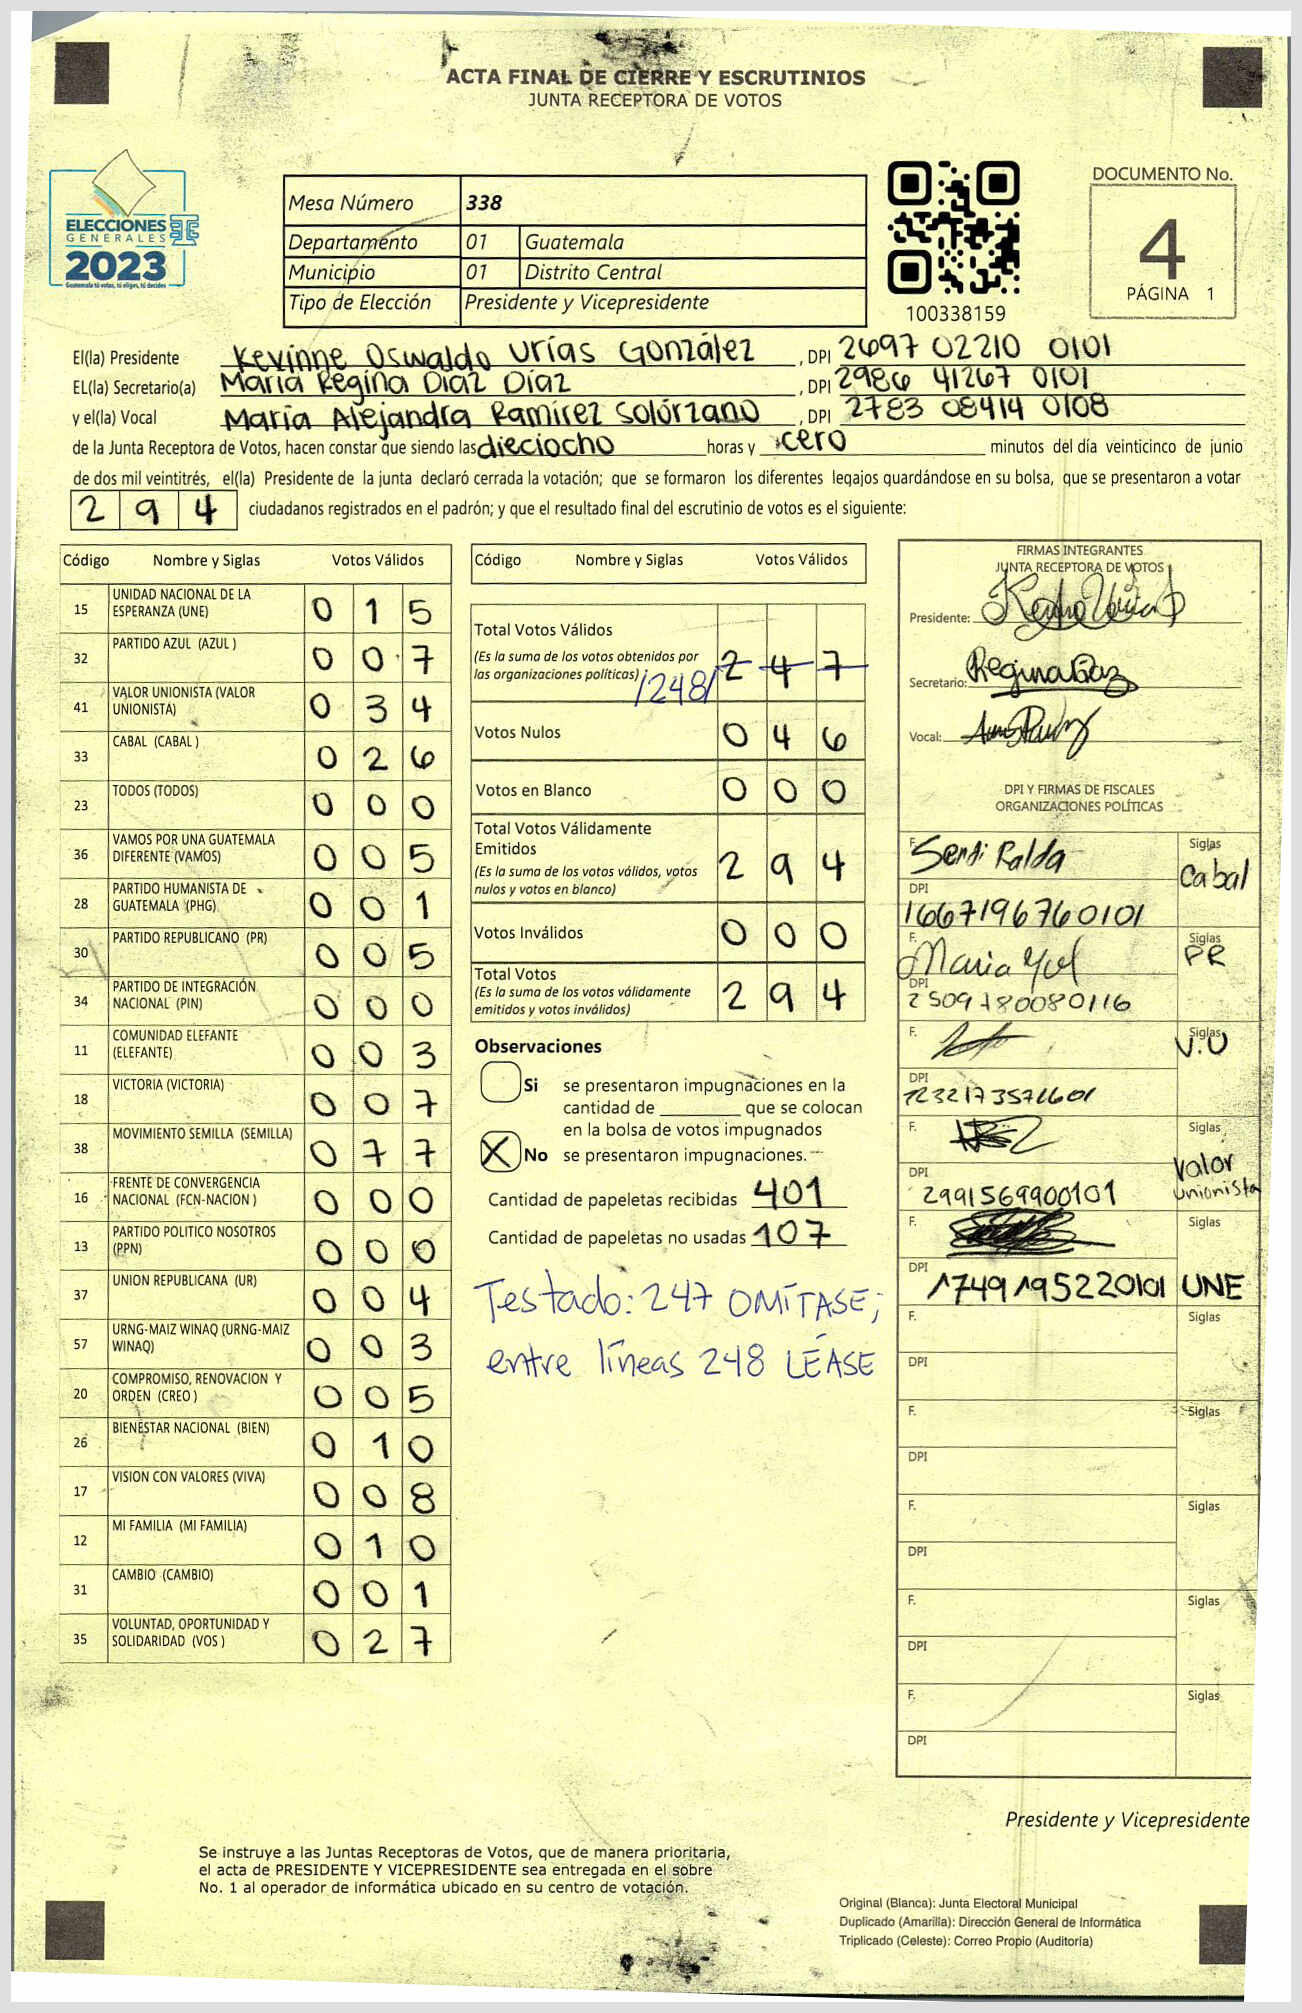 ACTA FINAL DE CIERRE Y ESCRUTINIOS
JUNTA RECEPTORA DE VOTOS
ELECCIONES
GENERALES
2023
Guatemala tú votas, tú eliges, tú decides
Mesa Número 338
Departamento 01 Guatemala
Municipio 01 Distrito Central
Tipo de Elección Presidente y Vicepresidente
100338159
DOCUMENTO No.
4
PÁGINA 1
El(la) Presidente Kevinne Oswaldo Urías González, DPI 2697 02210 0101
EL(la) Secretario(a) María Regina Díaz Díaz, DPI 2986 41267 0101
y el(la) Vocal María Alejandra Ramírez Solórzano, DPI 2783 08414 0108
de la Junta Receptora de Votos, hacen constar que siendo las dieciocho horas y cero minutos del día veinticinco de junio
de dos mil veintitrés, el(la) Presidente de la junta declaró cerrada la votación; que se formaron los diferentes legajos guardándose en su bolsa, que se presentaron a votar
294 ciudadanos registrados en el padrón; y que el resultado final del escrutinio de votos es el siguiente:
Código Nombre y Siglas Votos Válidos
15 UNIDAD NACIONAL DE LA ESPERANZA (UNE) 0 1 5
32 PARTIDO AZUL (AZUL ) 0 0 7
41 VALOR UNIONISTA (VALOR UNIONISTA) 0 3 4
33 CABAL (CABAL ) 0 2 6
23 TODOS (TODOS) 0 0 0
36 VAMOS POR UNA GUATEMALA DIFERENTE (VAMOS) 0 0 5
28 PARTIDO HUMANISTA DE GUATEMALA (PHG) 0 0 1
30 PARTIDO REPUBLICANO (PR) 0 0 5
34 PARTIDO DE INTEGRACIÓN NACIONAL (PIN) 0 0 0
11 COMUNIDAD ELEFANTE (ELEFANTE) 0 0 3
18 VICTORIA (VICTORIA) 0 0 7
38 MOVIMIENTO SEMILLA (SEMILLA) 0 7 7
16 FRENTE DE CONVERGENCIA NACIONAL (FCN-NACION ) 0 0 0
13 PARTIDO POLITICO NOSOTROS (PPN) 0 0 0
37 UNION REPUBLICANA (UR) 0 0 4
57 URNG-MAIZ WINAQ (URNG-MAIZ WINAQ) 0 0 3
20 COMPROMISO, RENOVACION Y ORDEN (CREO ) 0 0 5
26 BIENESTAR NACIONAL (BIEN) 0 1 0
17 VISION CON VALORES (VIVA) 0 0 8
12 MI FAMILIA (MI FAMILIA) 0 1 0
31 CAMBIO (CAMBIO) 0 0 1
35 VOLUNTAD, OPORTUNIDAD Y SOLIDARIDAD (VOS ) 0 2 7
Código Nombre y Siglas Votos Válidos
Total Votos Válidos
(Es la suma de los votos obtenidos por
las organizaciones políticas) /248/ 2 4 7
Votos Nulos 0 4 6
Votos en Blanco 0 0 0
Total Votos Válidamente
Emitidos
(Es la suma de los votos válidos, votos
nulos y votos en blanco) 2 9 4
Votos Inválidos 0 0 0
Total Votos
(Es la suma de los votos válidamente
emitidos y votos inválidos) 2 9 4
Observaciones
Si se presentaron impugnaciones en la
cantidad de ________ que se colocan
en la bolsa de votos impugnados
X No se presentaron impugnaciones.
Cantidad de papeletas recibidas 401
Cantidad de papeletas no usadas 107
Testado: 247 OMÍTASE;
entre líneas 248 LÉASE
FIRMAS INTEGRANTES
JUNTA RECEPTORA DE VOTOS
Presidente:
Secretario: Regina Díaz
Vocal:
DPI Y FIRMAS DE FISCALES
ORGANIZACIONES POLÍTICAS
F. Siglas
Cabal
DPI
1667196760101
F. Maria Siglas
PR
DPI
2509180080116
F. Siglas
V.U
DPI
F. Siglas
Valor
Unionista
DPI
2991569900101
F. Siglas
DPI
1749195220101 UNE
F. Siglas
DPI
F. Siglas
DPI
F. Siglas
DPI
F. Siglas
DPI
F. Siglas
DPI
Presidente y Vicepresidente
Se instruye a las Juntas Receptoras de Votos, que de manera prioritaria,
el acta de PRESIDENTE Y VICEPRESIDENTE sea entregada en el sobre
No. 1 al operador de informática ubicado en su centro de votación.
Original (Blanca): Junta Electoral Municipal
Duplicado (Amarilla): Dirección General de Informática
Triplicado (Celeste): Correo Propio (Auditoría)